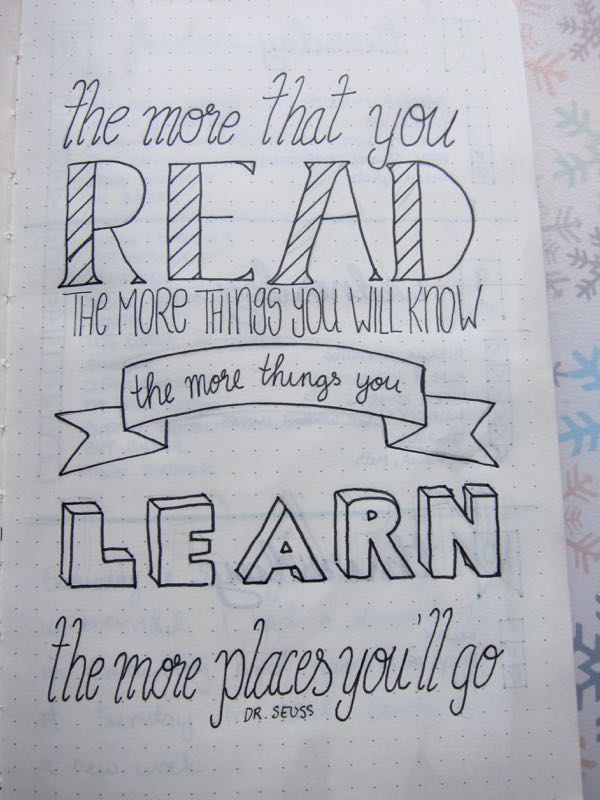 the more that you
READ
THE MORE THINGS YOU WILL KNOW
the more things you
LEARN
the more places you'll go
DR. SEUSS